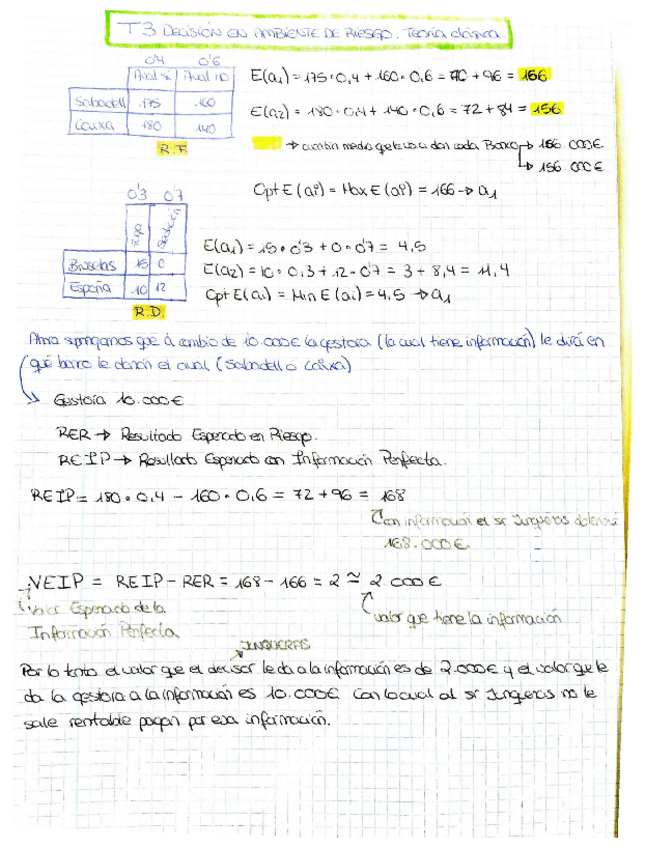 T3 DECISIÓN EN AMBIENTE DE RIESGO. Teoría clásica.
0'4 0'6
Aval sí Aval no
Sabadell 175 160
Caixa 180 140
R.F.
E(a1) = 175·0,4 + 160·0,6 = 70 + 96 = 166
E(a2) = 180·0,4 + 140·0,6 = 72 + 84 = 156
→ cuantía media que le va a dar cada Banco → 166.000€
→ 156.000€
Opt E(ai) = Max E(ai) = 166 → a1
0'3 0'7
Fuga Sedición
Bruselas 15 0
España 10 12
R.D.
E(a1) = 15·0'3 + 0·0'7 = 4,5
E(a2) = 10·0,3 + 12·0'7 = 3 + 8,4 = 11,4
Opt E(ai) = Min E(ai) = 4,5 → a1
Ahora supongamos que a cambio de 10.000€ la gestora (la cual tiene información) le dirá en
qué banco le darán el aval (Sabadell o Caixa)
Gestoría 10.000€
RER → Resultado Esperado en Riesgo.
REIP → Resultado Esperado con Información Perfecta.
REIP = 180·0,4 - 160·0,6 = 72 + 96 = 168
Con información el sr Junqueras
168.000€
VEIP = REIP - RER = 168 - 166 = 2 ≃ 2.000€
Valor Esperado de la
Información Perfecta
valor que tiene la información
JUNQUERAS
Por lo tanto el valor que el decisor le da a la información es de 2.000€ y el valor que le
da la gestora a la información es 10.000€ con lo cual al sr Junqueras no le
sale rentable pagar por esa información.